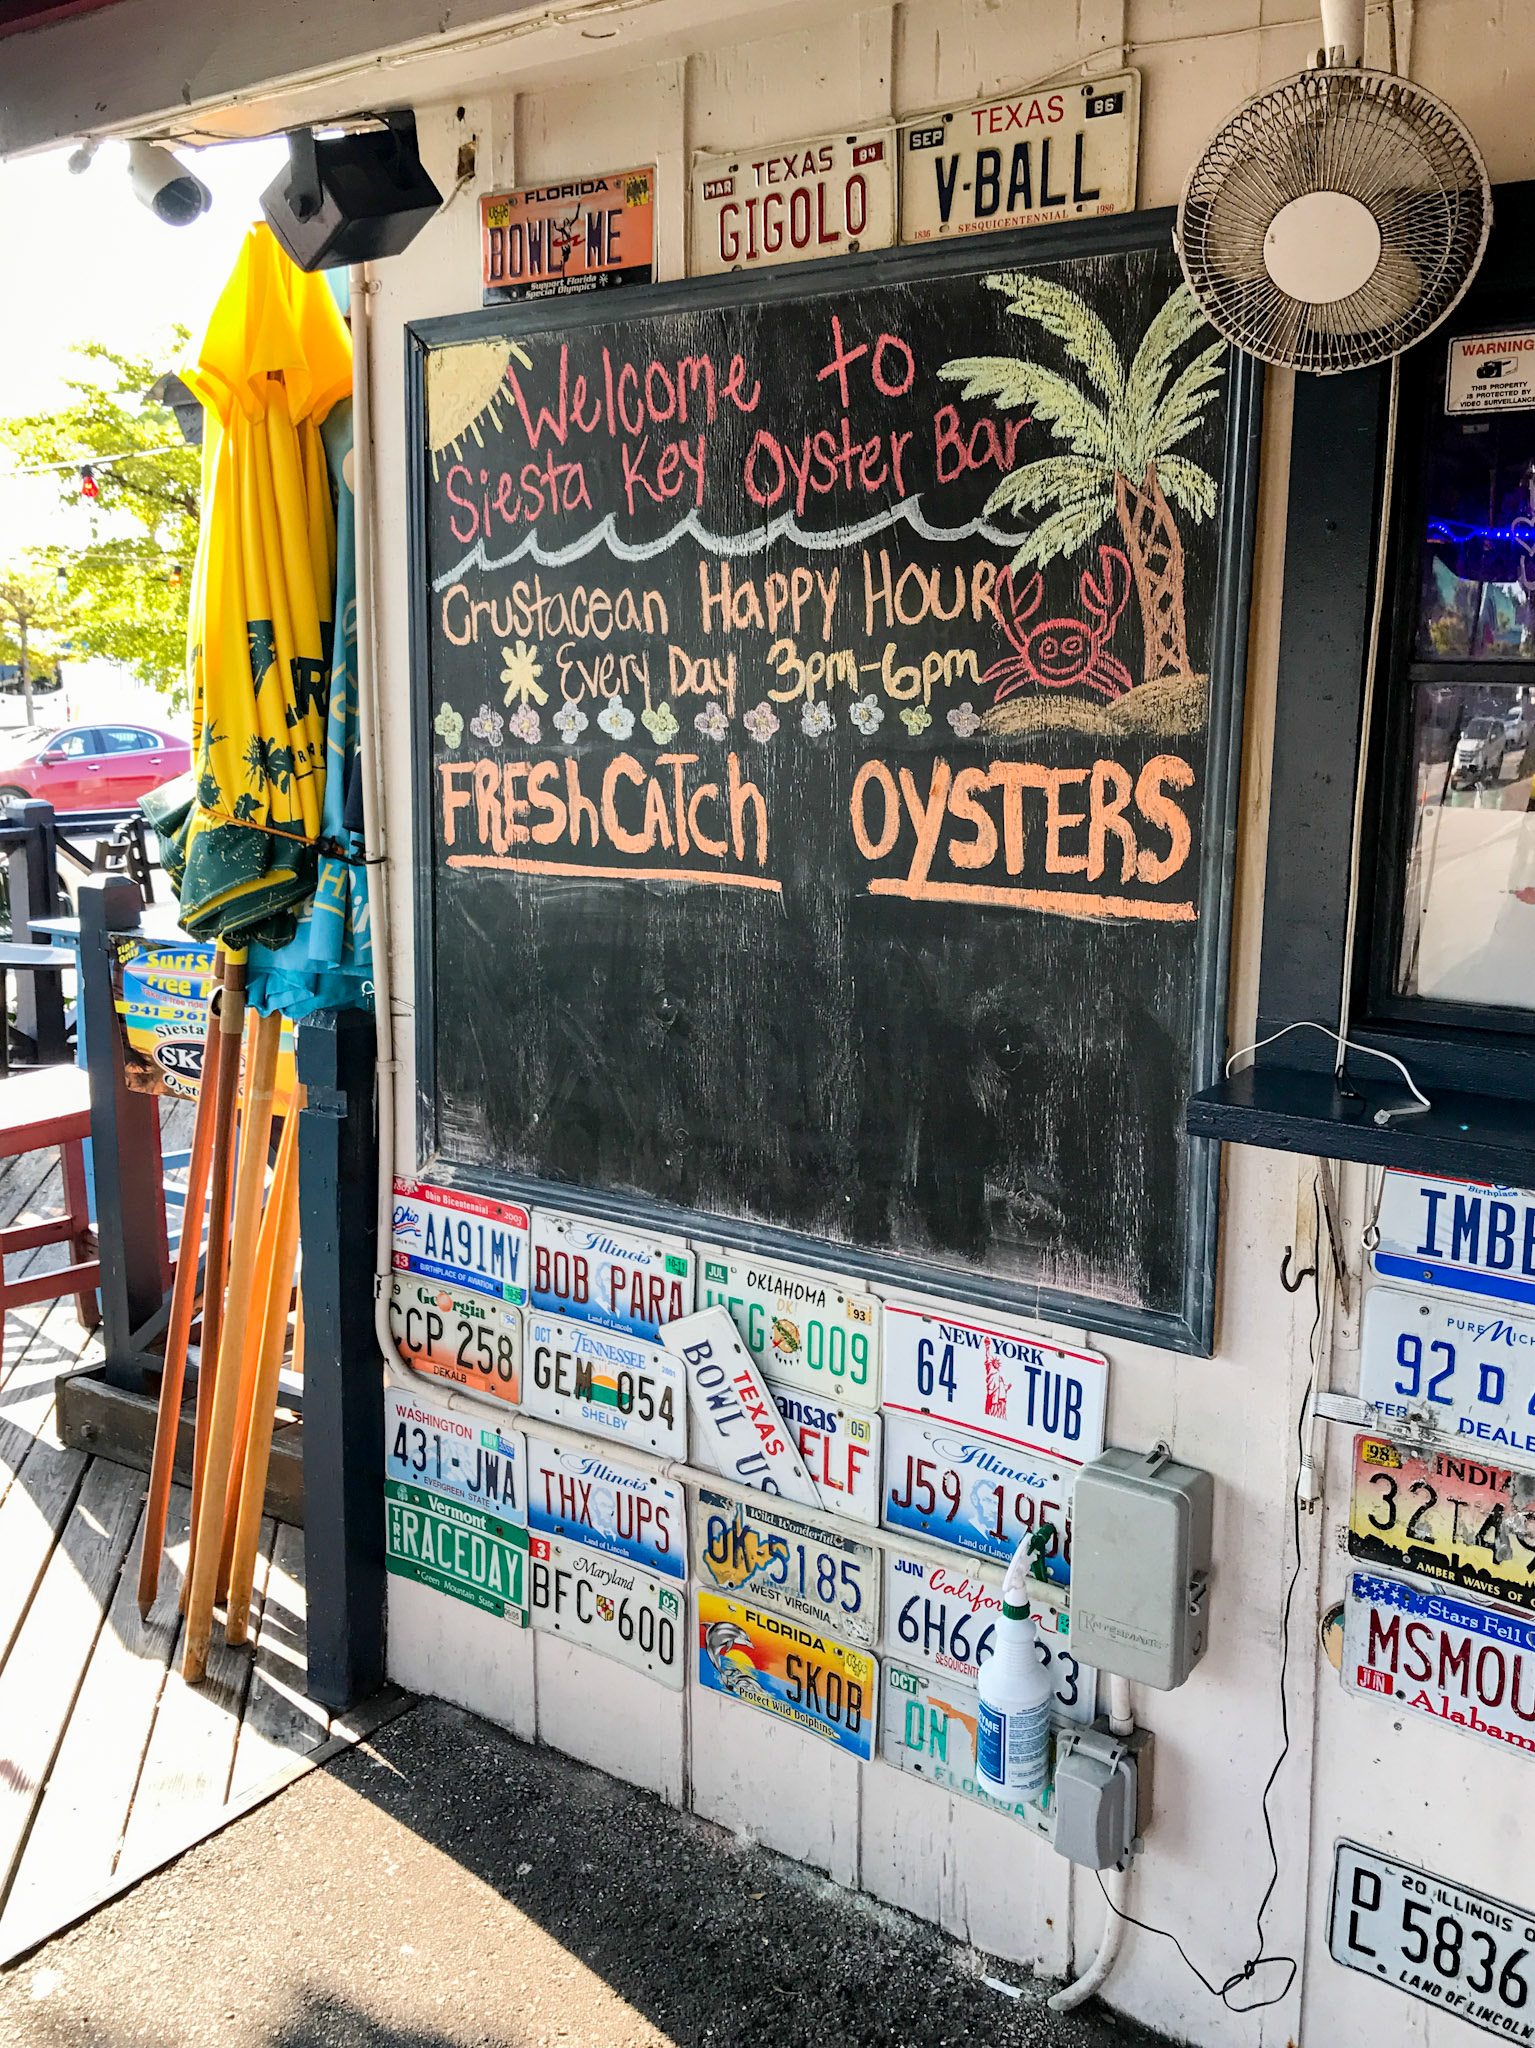 FLORIDA
BOWL ME
Support Florida
Special Olympics
TEXAS
MAR
84
GIGOLO
TEXAS
SEP
86
V-BALL
1836 SESQUICENTENNIAL 1986
WARNING
THIS PROPERTY
IS PROTECTED BY
VIDEO SURVEILLANCE
Welcome to
Siesta Key Oyster Bar
Crustacean Happy Hour
Every Day 3pm-6pm
FRESh CATch
OYSTERS
Tips
Only
Surf
Free
Take a free ride
941-961
Siesta
SK
Oyst
Ohio Bicentennial 2003
Ohio
AA91MV
13
BIRTHPLACE OF AVIATION
Illinois
10-11
BOB PARA
Land of Lincoln
JUL
OKLAHOMA
OK!
93
009
NEW YORK
64 TUB
Georgia
94
CCP 258
DEKALB
OCT
TENNESSEE
2001
GEM 054
SHELBY
TEXAS
BOWL US
ansas
05
ELF
Illinois
J59 195
Land of Lincoln
WASHINGTON
NOV
431-JWA
EVERGREEN STATE
Illinois
THX UPS
Land of Lincoln
Wild, Wonderful
OK 5185
WEST VIRGINIA
JUN
California
6H66 3
SESQUICENTE
Vermont
TRK
RACEDAY
Green Mountain State
3
Maryland
02
BFC 600
FLORIDA
SKOB
Protect Wild Dolphins
OCT
DN
FLORIDA
YME
Birthplace
IMBE
PURE MICH
92 D
FEB
DEALE
98
INDIA
32T4
AMBER WAVES OF
Stars Fell
MSMOU
JUN
Alabam
20 ILLINOIS
DL 5836
LAND OF LINCOLN